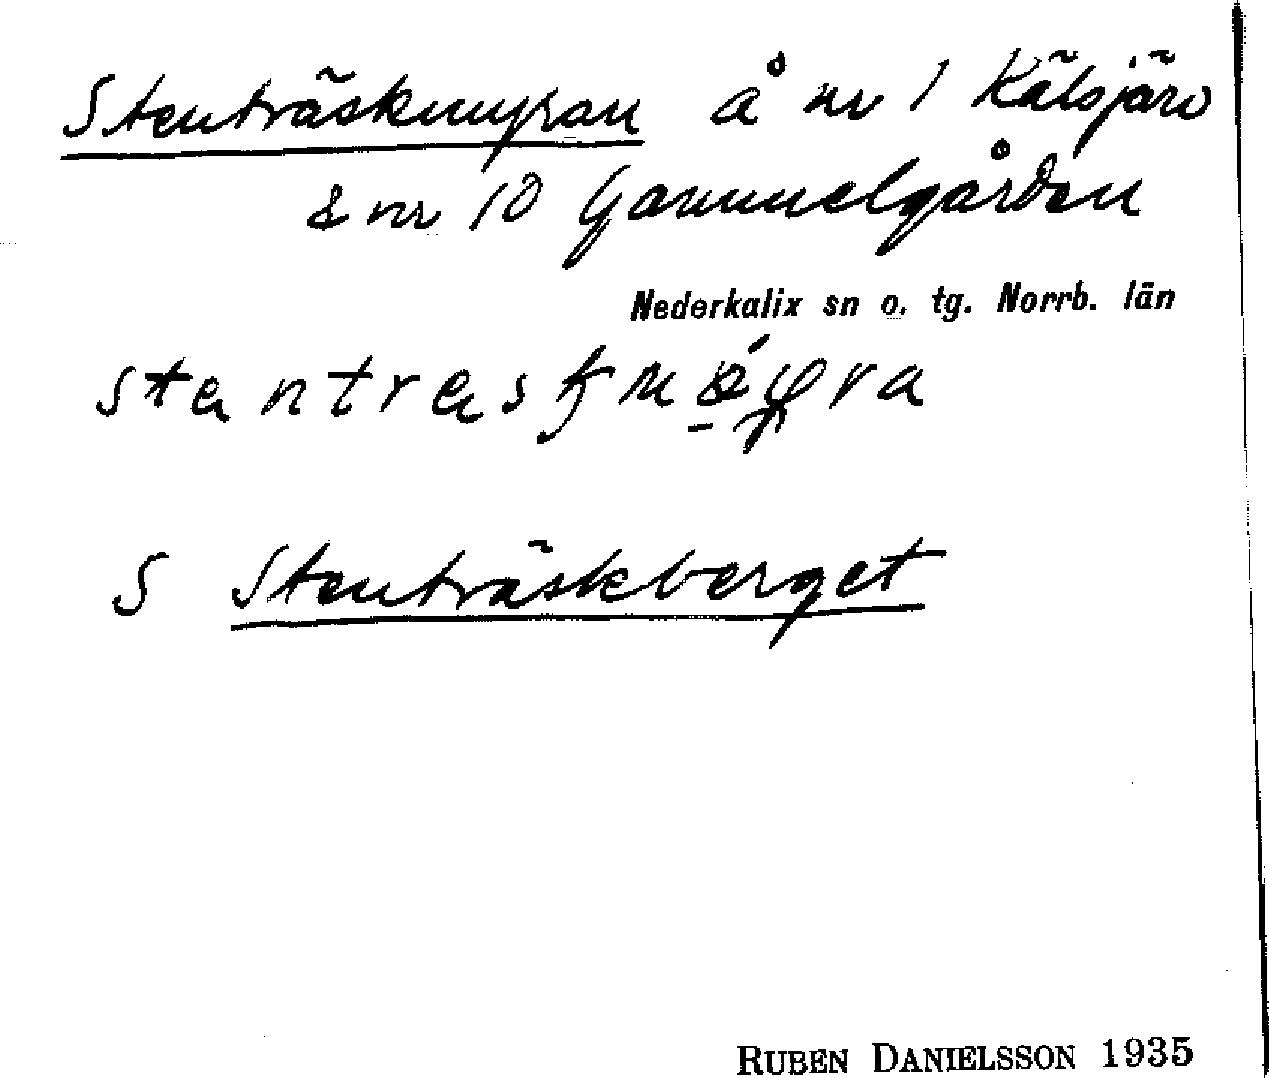 Stenträskmyran å nr 1 Kälsjärv
& nr 10 Gammelgården
Nederkalix sn o. tg. Norrb. län
S Stenträskberget
RUBEN DANIELSSON 1935